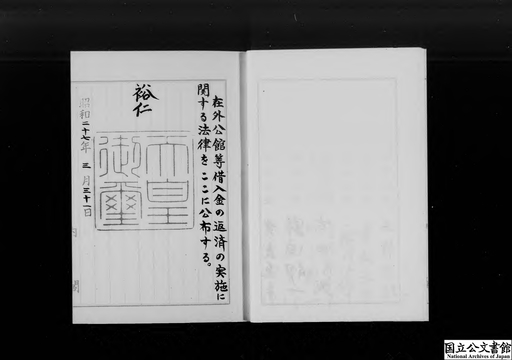 在外公館等借入金の返済の実施に
関する法律をここに公布する。
裕仁
天皇
御璽
昭和二十七年三月三十一日
内閣
国立公文書館
National Archives of Japan